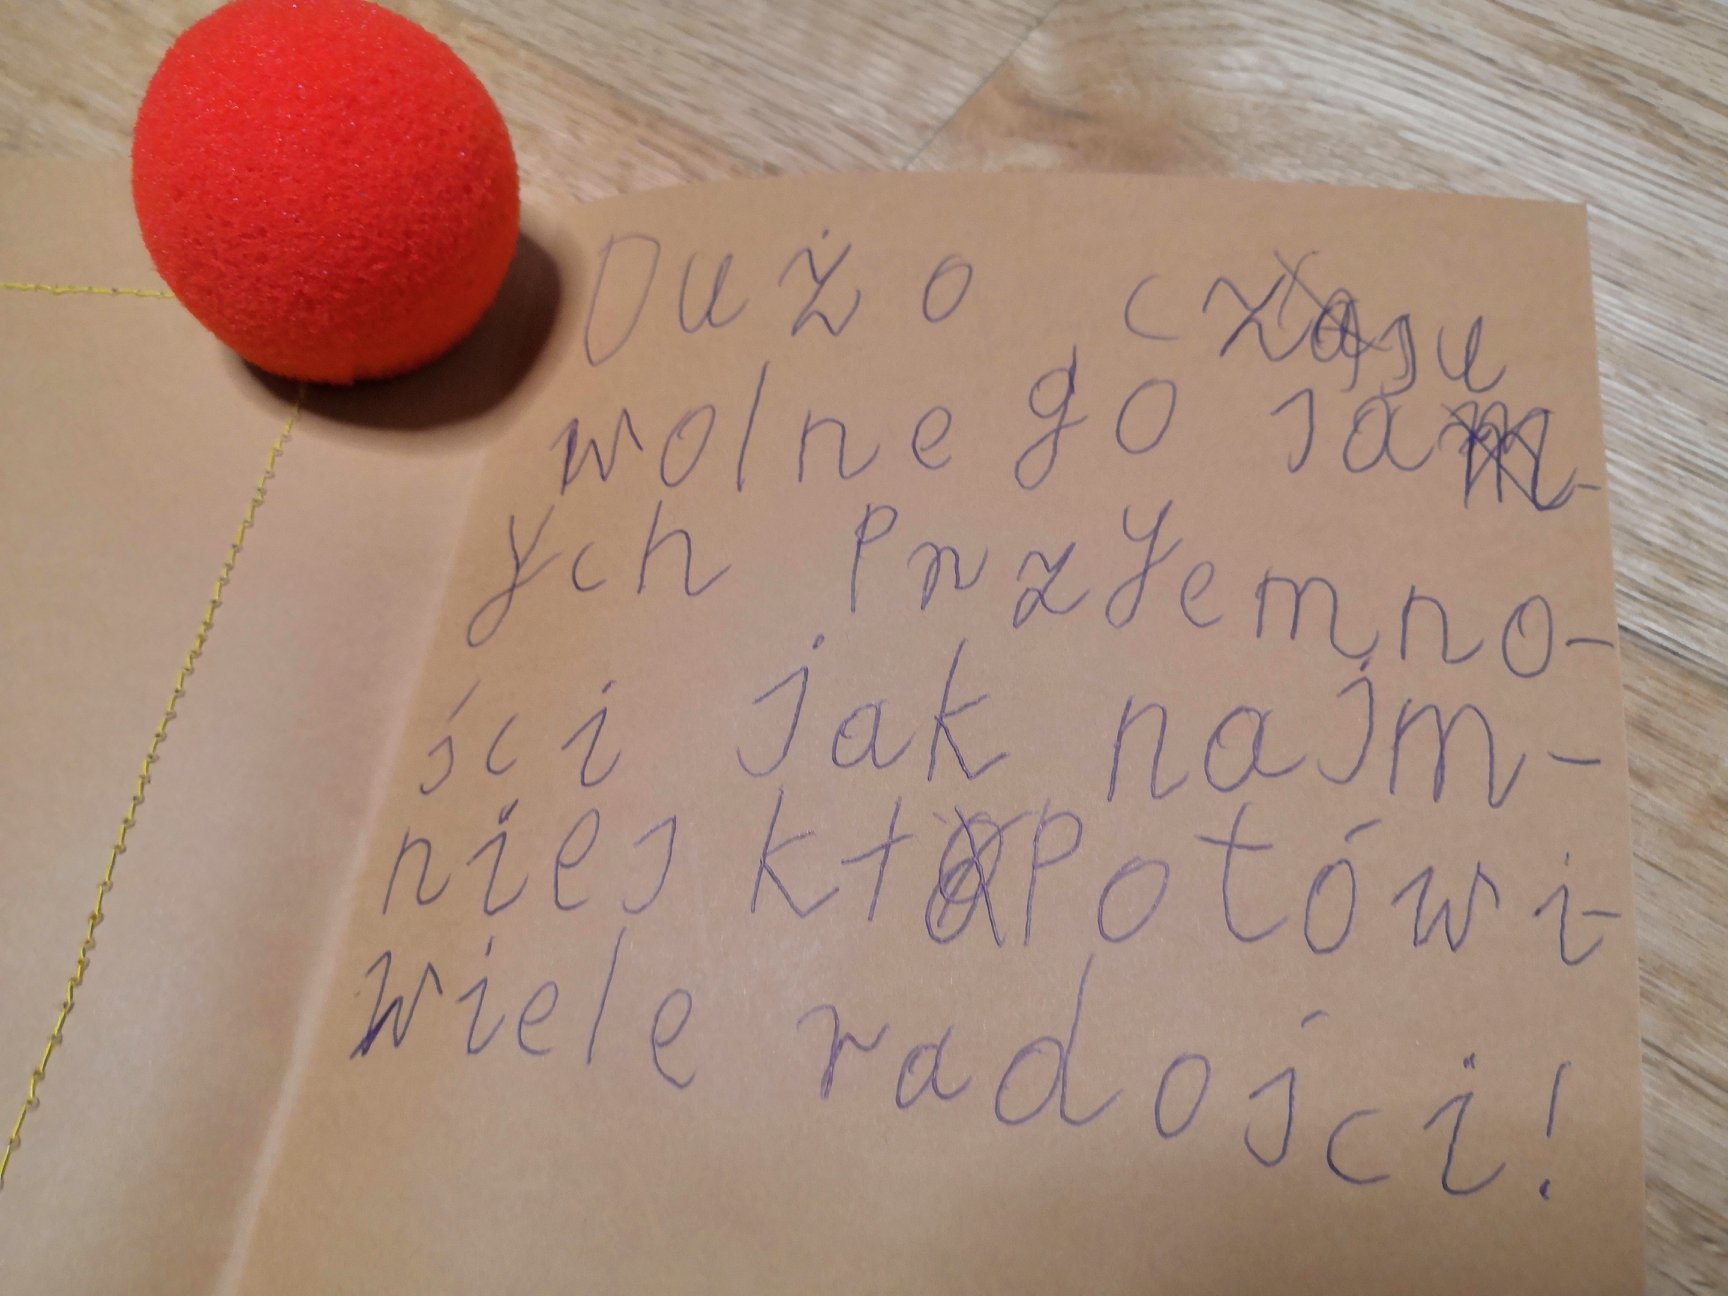 Dużo czasu
wolnego sam-
ych przyemno-
ści jak najm-
niej kłopotów i
wiele radości!